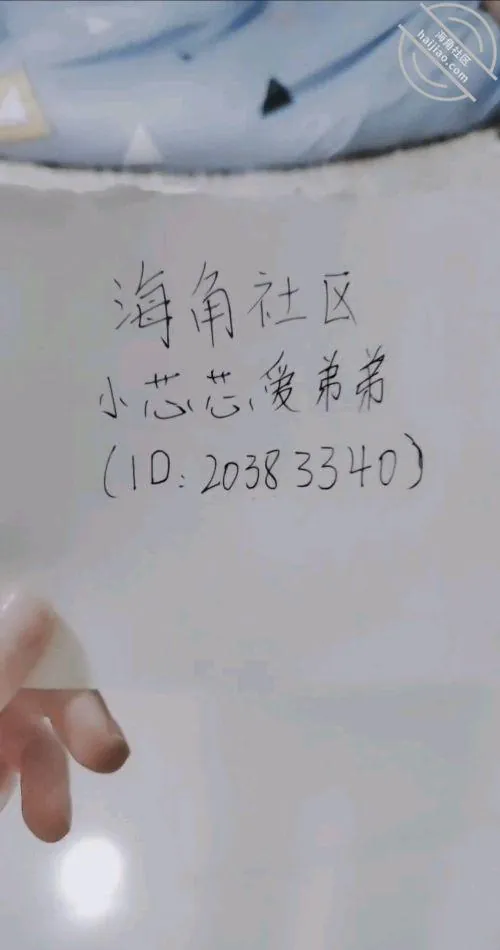 海角社区
haijiao.com
海角社区
小芯芯爱弟弟
(ID:20383340)